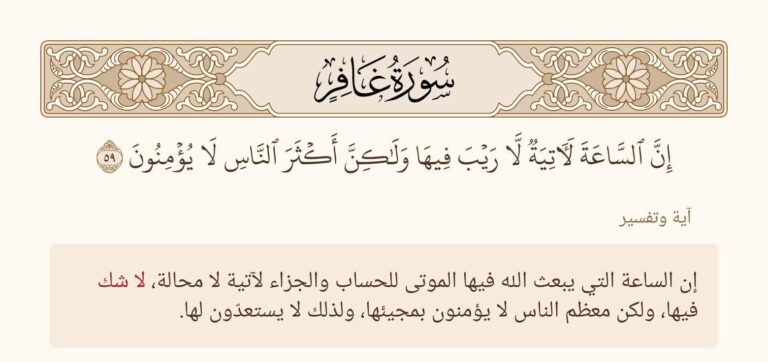 سُورَةُ غَافِرٍ
إِنَّ ٱلسَّاعَةَ لَأٓتِيَةٞ لَّا رَيۡبَ فِيهَا وَلَٰكِنَّ أَكۡثَرَ ٱلنَّاسِ لَا يُؤۡمِنُونَ ٥٩
آية وتفسير
إن الساعة التي يبعث الله فيها الموتى للحساب والجزاء لآتية لا محالة، لا شك
فيها، ولكن معظم الناس لا يؤمنون بمجيئها، ولذلك لا يستعدّون لها.